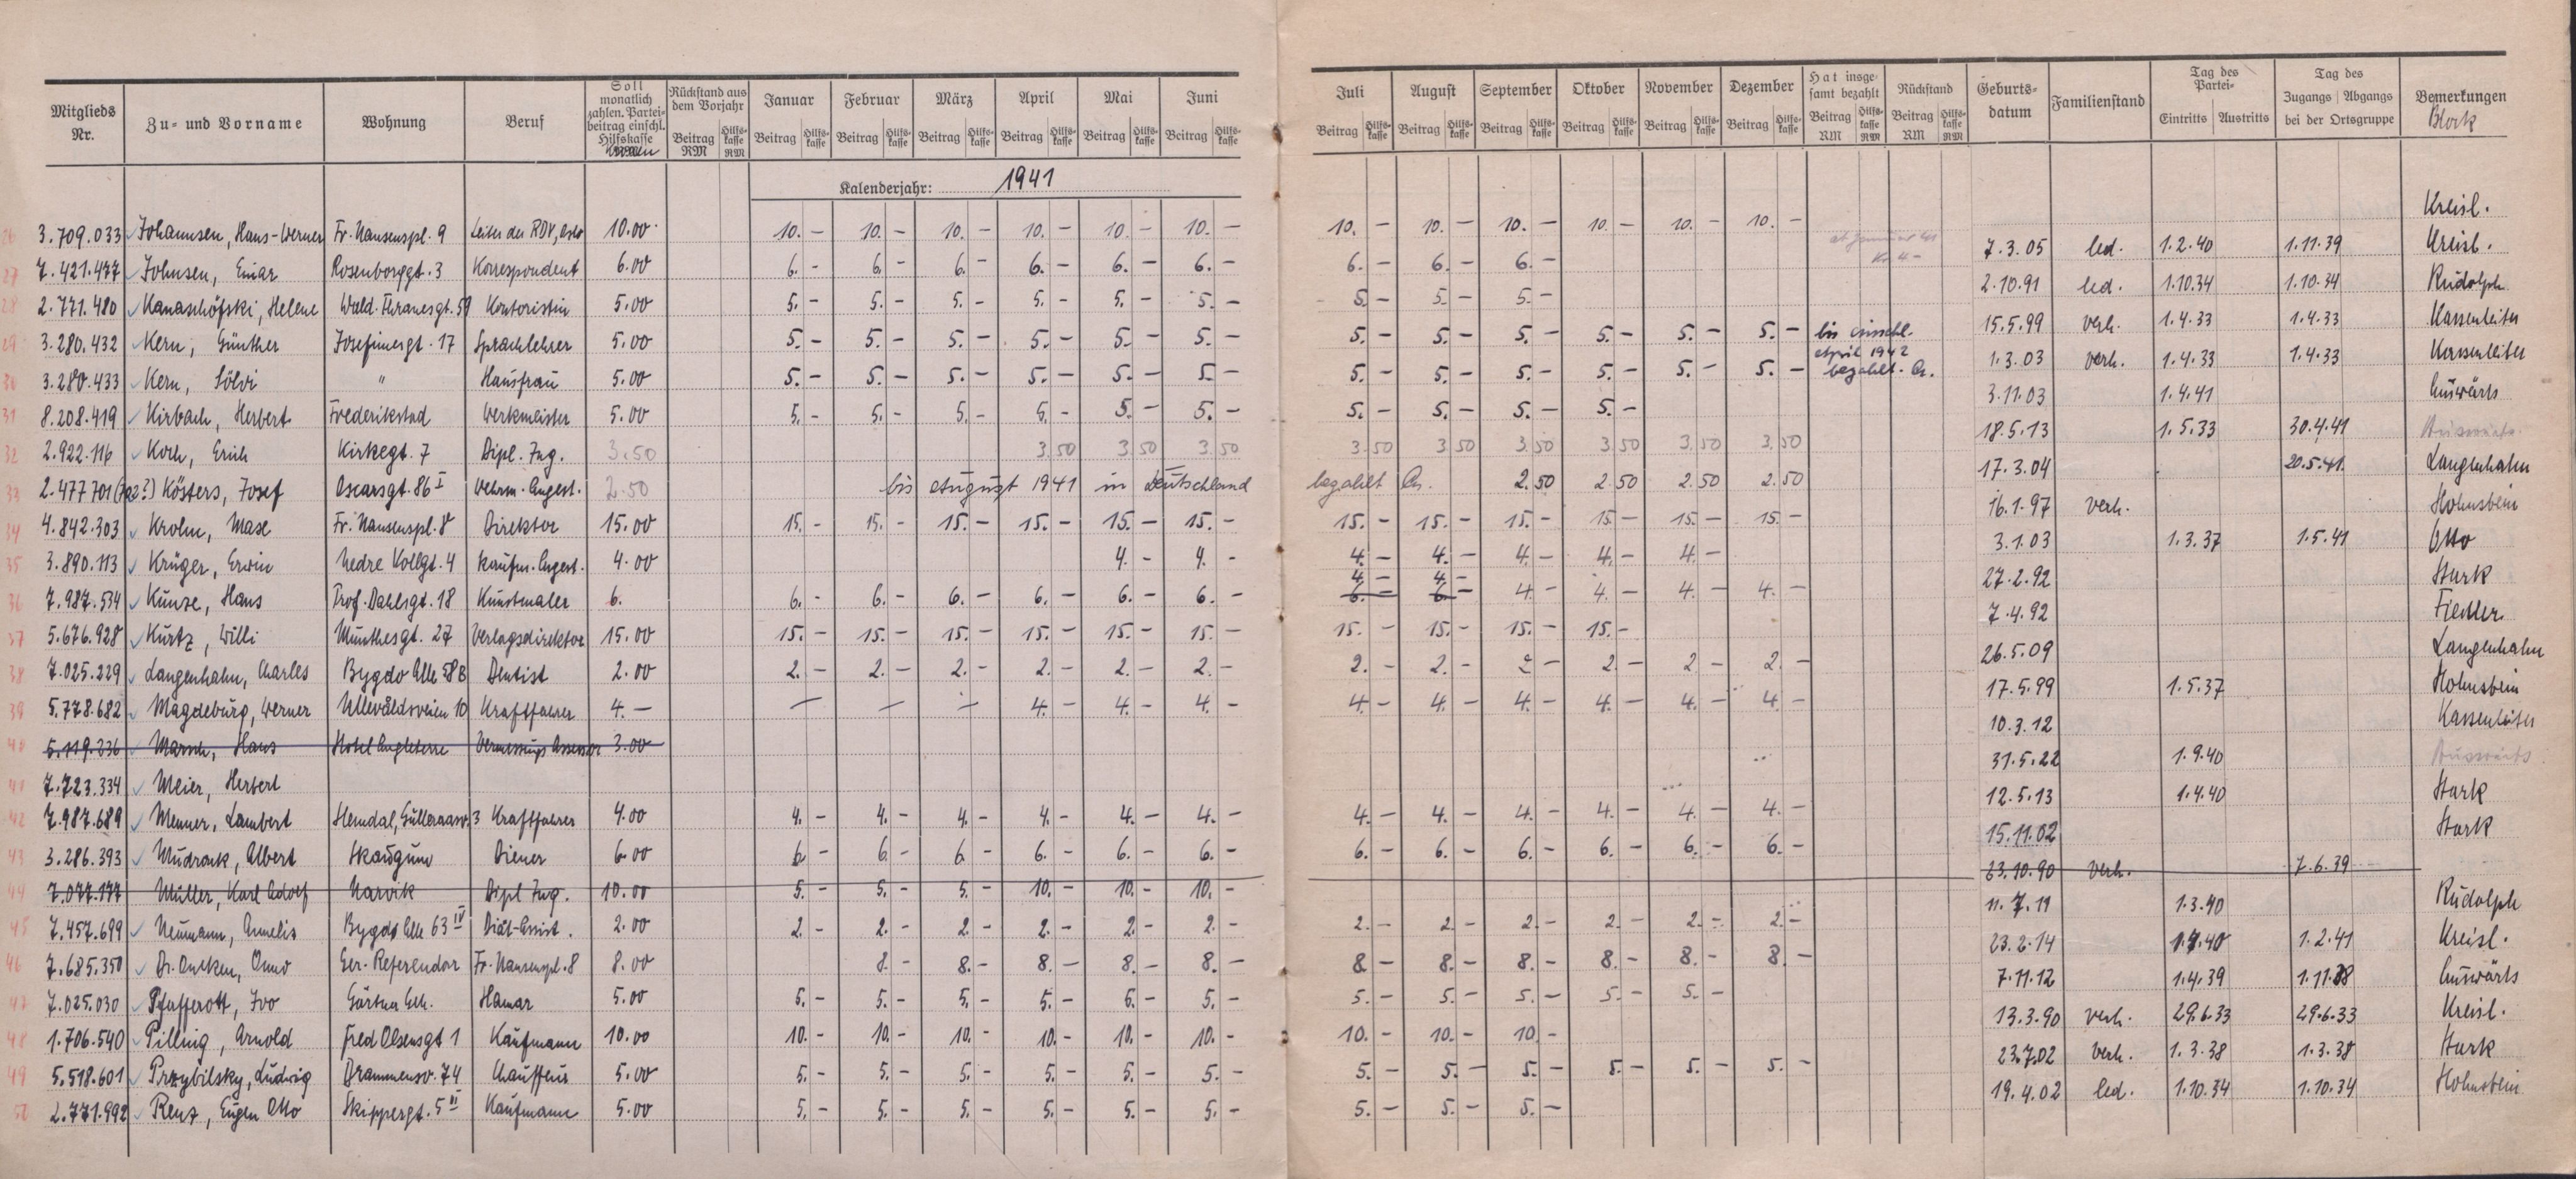 Mitglieds Nr. | Zu- und Vorname | Wohnung | Beruf | Soll monatlich zahlen. Partei-beitrag einschl. Hilfskasse | Rückstand aus dem Vorjahr Beitrag RM Hilfs-kasse RM | Januar Beitrag Hilfs-kasse | Februar Beitrag Hilfs-kasse | März Beitrag Hilfs-kasse | April Beitrag Hilfs-kasse | Mai Beitrag Hilfs-kasse | Juni Beitrag Hilfs-kasse | Juli Beitrag Hilfs-kasse | August Beitrag Hilfs-kasse | September Beitrag Hilfs-kasse | Oktober Beitrag Hilfs-kasse | November Beitrag Hilfs-kasse | Dezember Beitrag Hilfs-kasse | Hat insge-samt bezahlt Beitrag RM Hilfs-kasse RM | Rückstand Beitrag RM Hilfs-kasse RM | Geburts-datum | Familienstand | Tag des Partei- Eintritts Austritts | Tag des Zugangs Abgangs bei der Ortsgruppe | Bemerkungen Block
Kalenderjahr: 1941
26 3.709.033 Johannsen, Hans-Werner Fr. Nansenspl. 9 Leiter der RDV, Oslo 10.00 10.- 10.- 10.- 10.- 10.- 10.- 10.- 10.- 10.- 10.- 10.- 10.- Kreisl.
27 7.421.477 Johnsen, Einar Rosenborggt. 3 Korrespondent 6.00 6.- 6.- 6.- 6.- 6.- 6.- 6.- 6.- 6.- 7.3.05 led. 1.2.40 1.11.39 Kreisl.
28 2.771.480 Kanaschöfski, Helene Wald. Thranesgt. 59 Kontoristin 5.00 5.- 5.- 5.- 5.- 5.- 5.- 5.- 5.- 5.- 2.10.91 led. 1.10.34 1.10.34 Rudolph
29 3.280.432 Kern, Günther Josefinesgt. 17 Sprachlehrer 5.00 5.- 5.- 5.- 5.- 5.- 5.- 5.- 5.- 5.- 5.- 5.- 5.- bis einschl. April 1942 15.5.99 verh. 1.4.33 1.4.33 Kassenleiter
30 3.280.433 Kern, Sölvi " Hausfrau 5.00 5.- 5.- 5.- 5.- 5.- 5.- 5.- 5.- 5.- 5.- 5.- 5.- bezahlt. 1.3.03 verh. 1.4.33 1.4.33 Kassenleiter
31 8.208.419 Kirbach, Herbert Frederikstad Werkmeister 5.00 5.- 5.- 5.- 5.- 5.- 5.- 5.- 5.- 5.- 5.- 3.11.03 1.4.41 Auswärts
32 2.922.116 Koch, Erich Kirkegt. 7 Dipl. Ing. 3.50 3.50 3.50 3.50 3.50 3.50 3.50 3.50 3.50 3.50 18.5.13 1.5.33 30.4.41 Auswärts
33 2.477 701 Kösters, Josef Oscarsgt. 86 I Wehrm. Angest. 2.50 bis August 1941 in Deutschland bezahlt 2.50 2.50 2.50 2.50 17.3.04 20.5.41 Langenhahn
34 4.842.303 Krohn, Max Fr. Nansenspl. 8 Direktor 15.00 15.- 15.- 15.- 15.- 15.- 15.- 15.- 15.- 15.- 15.- 15.- 15.- 16.1.97 verh. Hohnstein
35 3.890.113 Krüger, Erwin Nedre Vollgt. 4 kaufm. Angest. 4.00 4.- 4.- 4.- 4.- 4.- 4.- 4.- 3.1.03 1.3.37 1.5.41 Otto
36 7.987.534 Kunze, Hans Prof. Dahlsgt. 18 Kunstmaler 6. 6.- 6.- 6.- 6.- 6.- 6.- 4.- 6.- 4.- 6.- 4.- 4.- 4.- 4.- 27.2.92 Stark
37 5.676.928 Kurtz, Willi Munthesgt. 27 Verlagsdirektor 15.00 15.- 15.- 15.- 15.- 15.- 15.- 15.- 15.- 15.- 15.- 7.4.92 Fiedler
38 7.025.229 Langenhahn, Charles Bygdo Alle 58B Dentist 2.00 2.- 2.- 2.- 2.- 2.- 2.- 2.- 2.- 2.- 2.- 2.- 2.- 26.5.09 Langenhahn
39 5.778.682 Magdeburg, Werner Ullevåldsveien 10 Kraftfahrer 4.- - - - 4.- 4.- 4.- 4.- 4.- 4.- 4.- 4.- 4.- 17.5.99 1.5.37 Hohnstein
40 5.119.236 Marsch, Hans Hotel Angleterre Vermessungs Assessor 3.00 10.3.12 Kassenleiter
41 7.723.334 Meier, Herbert 31.5.22 1.9.40 Auswärts
42 7.987.689 Menner, Lambert Slemdal, Gulleraasv. 3 Kraftfahrer 4.00 4.- 4.- 4.- 4.- 4.- 4.- 4.- 4.- 4.- 4.- 4.- 4.- 12.5.13 1.4.40 Stark
43 3.286.393 Mudrack, Albert Skaugum Diener 6.00 6.- 6.- 6.- 6.- 6.- 6.- 6.- 6.- 6.- 6.- 6.- 6.- 15.11.02 Stark
44 7.077.177 Müller, Karl Adolf Narvik Dipl Ing. 10.00 5.- 5.- 5.- 10.- 10.- 10.- 23.10.90 verh. 7.6.39
45 7.457.699 Neumann, Annelis Bygdø Alle 63 IV Diät-Assist. 2.00 2.- 2.- 2.- 2.- 2.- 2.- 2.- 2.- 2.- 2.- 2.- 2.- 11.7.11 1.3.40 Rudolph
46 7.685.350 Dr. Oncken, Onno Ger. Referendar Fr. Nansenpl. 8 8.00 8.- 8.- 8.- 8.- 8.- 8.- 8.- 8.- 8.- 8.- 8.- 23.2.14 40 1.2.41 Kreisl.
47 7.025.030 Pfafferott, Ivo Gärtner Geh. Hamar 5.00 5.- 5.- 5.- 5.- 5.- 5.- 5.- 5.- 5.- 5.- 5.- 7.11.12 1.4.39 1.11.38 Auswärts
48 1.706.540 Pilling, Arnold Fred Olsensgt 1 Kaufmann 10.00 10.- 10.- 10. 10.- 10.- 10.- 10.- 10.- 10.- 13.3.90 verh. 29.6.33 29.6.33 Kreisl.
49 5.518.601 Przybilsky, Ludwig Drammensv. 74 Chauffeur 5.00 5.- 5.- 5.- 5.- 5.- 5.- 5.- 5.- 5.- 5.- 5.- 5.- 23.7.02 verh. 1.3.38 1.3.38 Stark
50 2.771.992 Renz, Eugen Otto Skippergt. 5 II Kaufmann 5.00 5.- 5.- 5.- 5.- 5.- 5.- 5.- 5.- 5.- 19.4.02 led. 1.10.34 1.10.34 Hohnstein